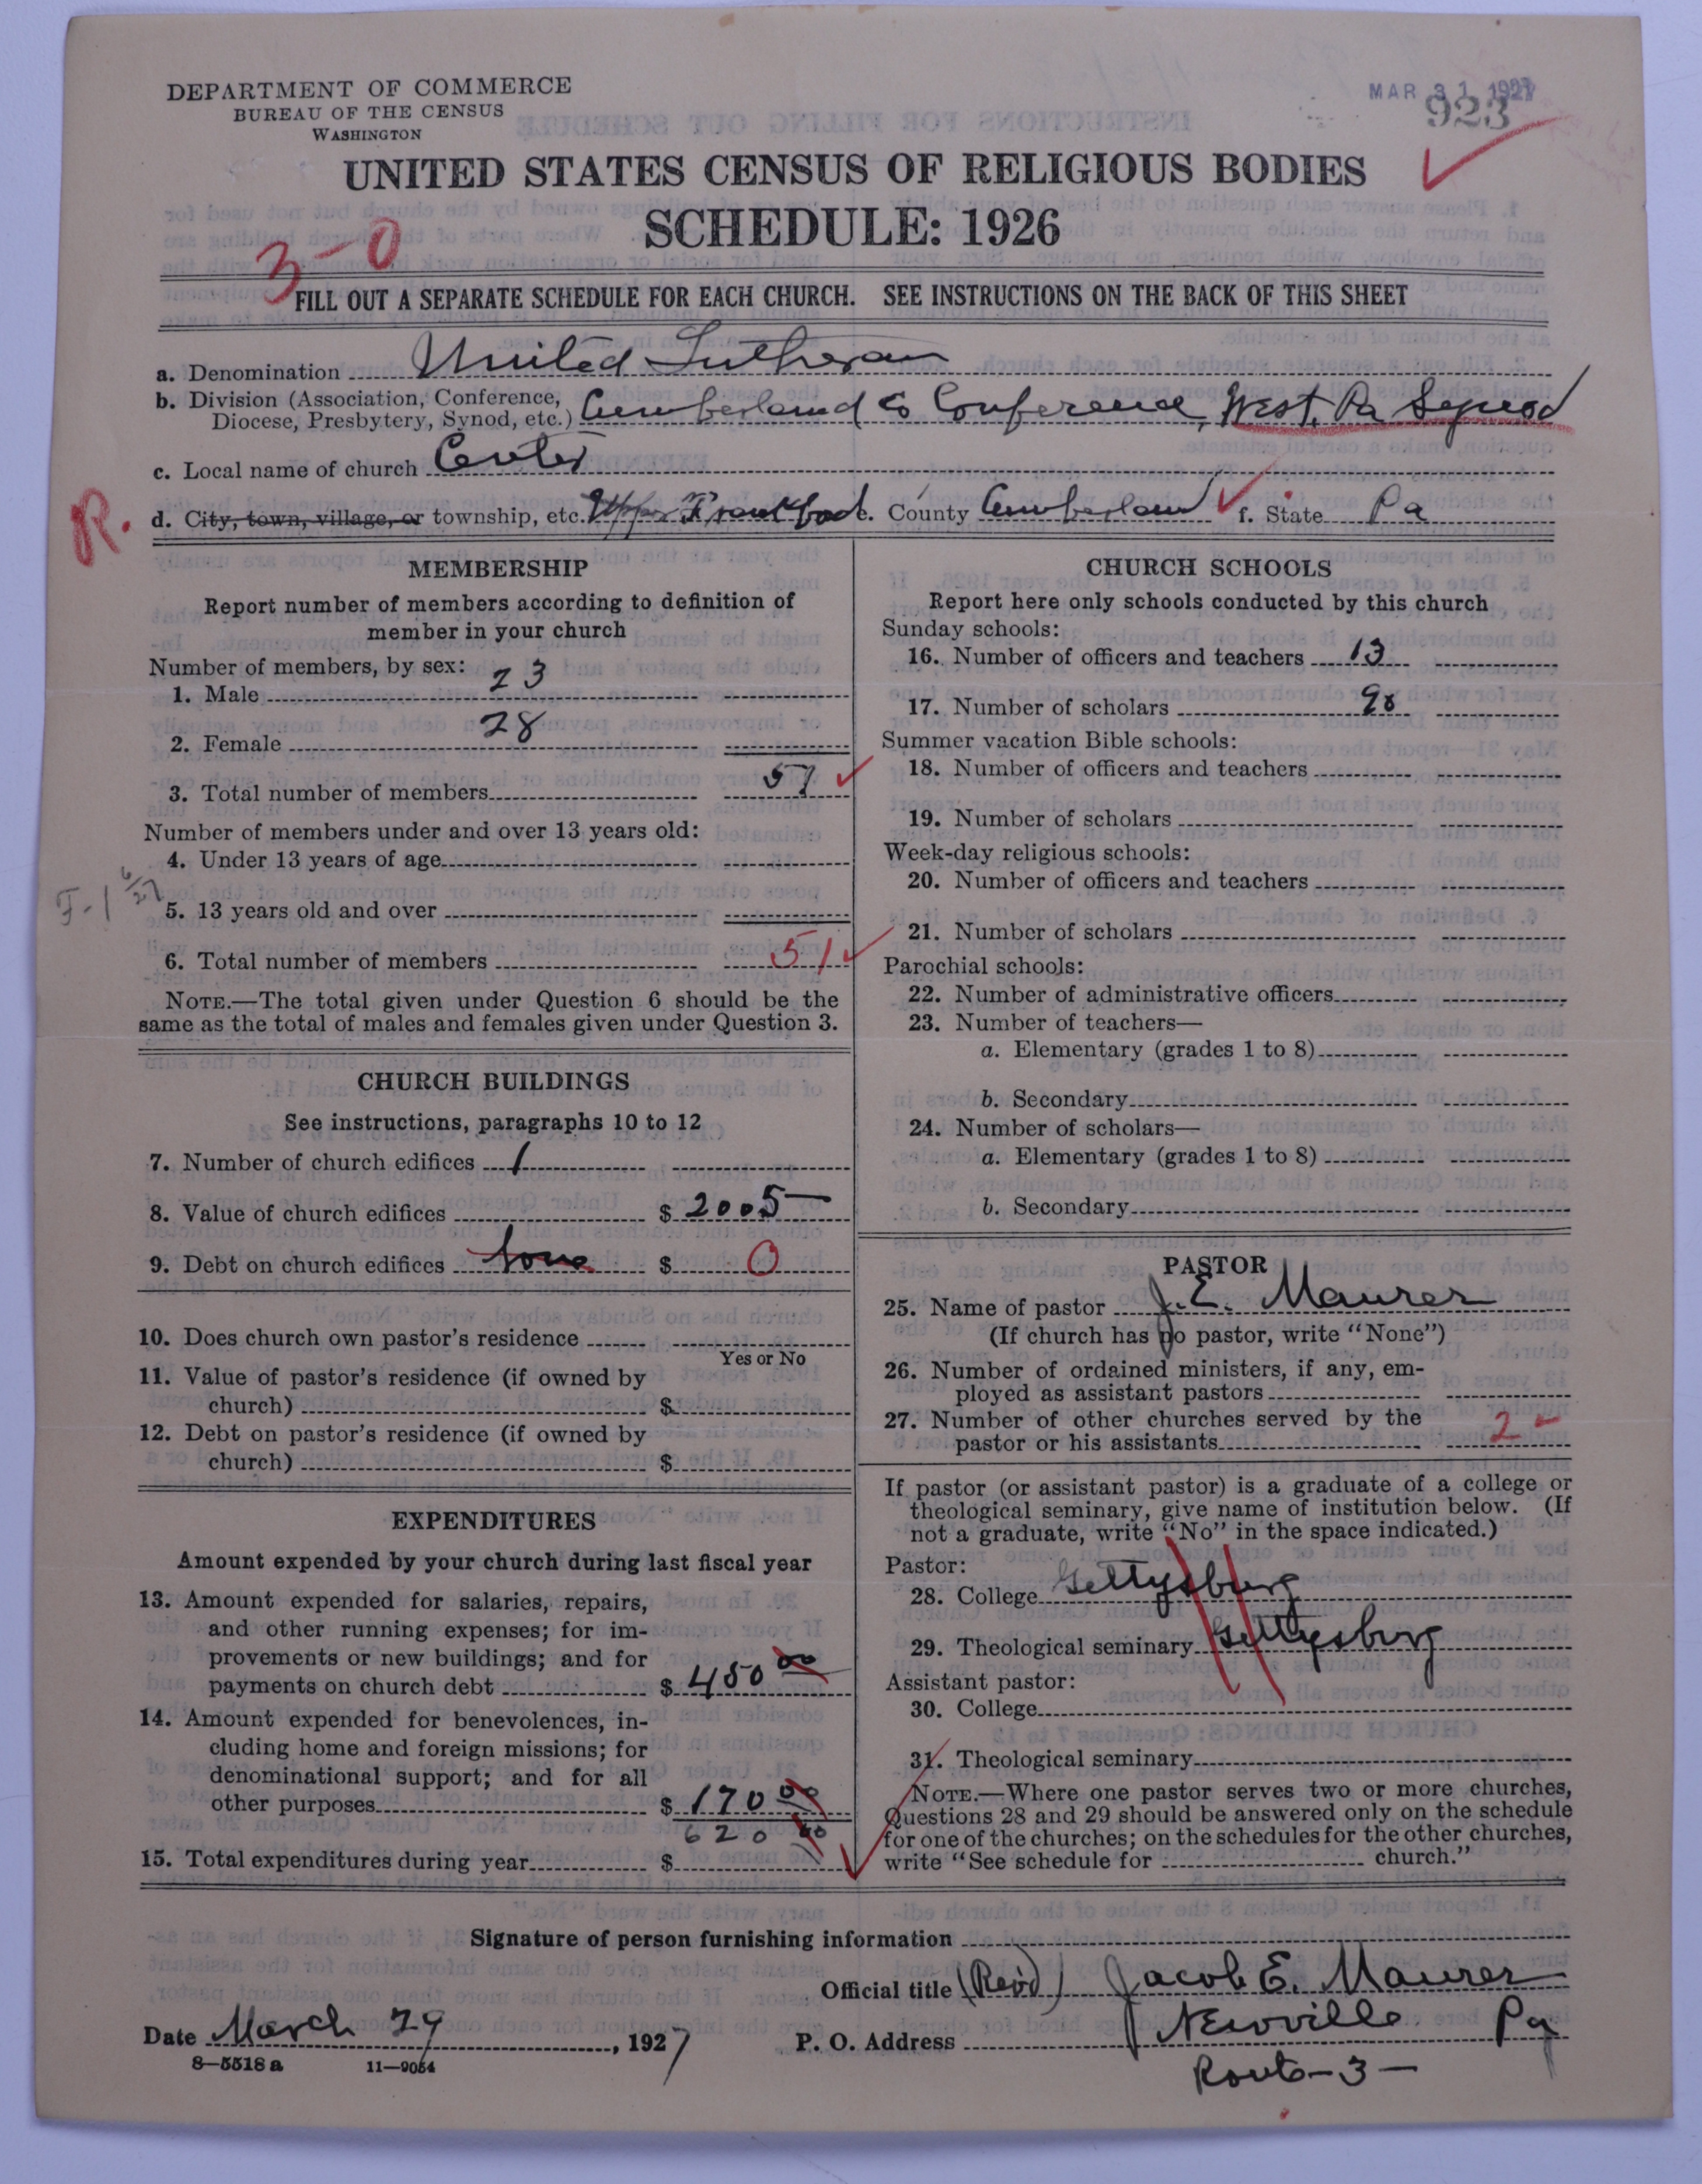 DEPARTMENT OF COMMERCE
BUREAU OF THE CENSUS
WASHINGTON
MAR 31 1927
923
UNITED STATES CENSUS OF RELIGIOUS BODIES
SCHEDULE: 1926
3-0
FILL OUT A SEPARATE SCHEDULE FOR EACH CHURCH. SEE INSTRUCTIONS ON THE BACK OF THIS SHEET
a. Denomination United Lutheran
b. Division (Association, Conference,
Diocese, Presbytery, Synod, etc.) Cumberland Co Conference, West. Pa Synod
c. Local name of church Center
R.
d. City, town, village, or township, etc. Upper Frankford e. County Cumberland f. State Pa
MEMBERSHIP
Report number of members according to definition of
member in your church
Number of members, by sex:
1. Male 23
2. Female 28
3. Total number of members 51
Number of members under and over 13 years old:
4. Under 13 years of age
F-1 6/27
5. 13 years old and over
6. Total number of members 51
NOTE.—The total given under Question 6 should be the
same as the total of males and females given under Question 3.
CHURCH BUILDINGS
See instructions, paragraphs 10 to 12
7. Number of church edifices 1
8. Value of church edifices $ 2005
9. Debt on church edifices None $ 0
10. Does church own pastor's residence
Yes or No
11. Value of pastor's residence (if owned by
church) $
12. Debt on pastor's residence (if owned by
church) $
EXPENDITURES
Amount expended by your church during last fiscal year
13. Amount expended for salaries, repairs,
and other running expenses; for im-
provements or new buildings; and for
payments on church debt $ 450 00
14. Amount expended for benevolences, in-
cluding home and foreign missions; for
denominational support; and for all
other purposes $ 170 00
620 00
15. Total expenditures during year $
CHURCH SCHOOLS
Report here only schools conducted by this church
Sunday schools:
16. Number of officers and teachers 13
17. Number of scholars 98
Summer vacation Bible schools:
18. Number of officers and teachers
19. Number of scholars
Week-day religious schools:
20. Number of officers and teachers
21. Number of scholars
Parochial schools:
22. Number of administrative officers
23. Number of teachers—
a. Elementary (grades 1 to 8)
b. Secondary
24. Number of scholars—
a. Elementary (grades 1 to 8)
b. Secondary
PASTOR
25. Name of pastor J. E. Maurer
(If church has no pastor, write "None")
26. Number of ordained ministers, if any, em-
ployed as assistant pastors
27. Number of other churches served by the
pastor or his assistants 2
If pastor (or assistant pastor) is a graduate of a college or
theological seminary, give name of institution below. (If
not a graduate, write "No" in the space indicated.)
Pastor:
28. College Gettysburg
29. Theological seminary Gettysburg
Assistant pastor:
30. College
31. Theological seminary
NOTE.—Where one pastor serves two or more churches,
Questions 28 and 29 should be answered only on the schedule
for one of the churches; on the schedules for the other churches,
write "See schedule for church."
Signature of person furnishing information
Official title (Rev'd) Jacob E. Maurer
Date March 29, 1927 P. O. Address Newville Pa
8—5518 a 11—9054
Route-3-